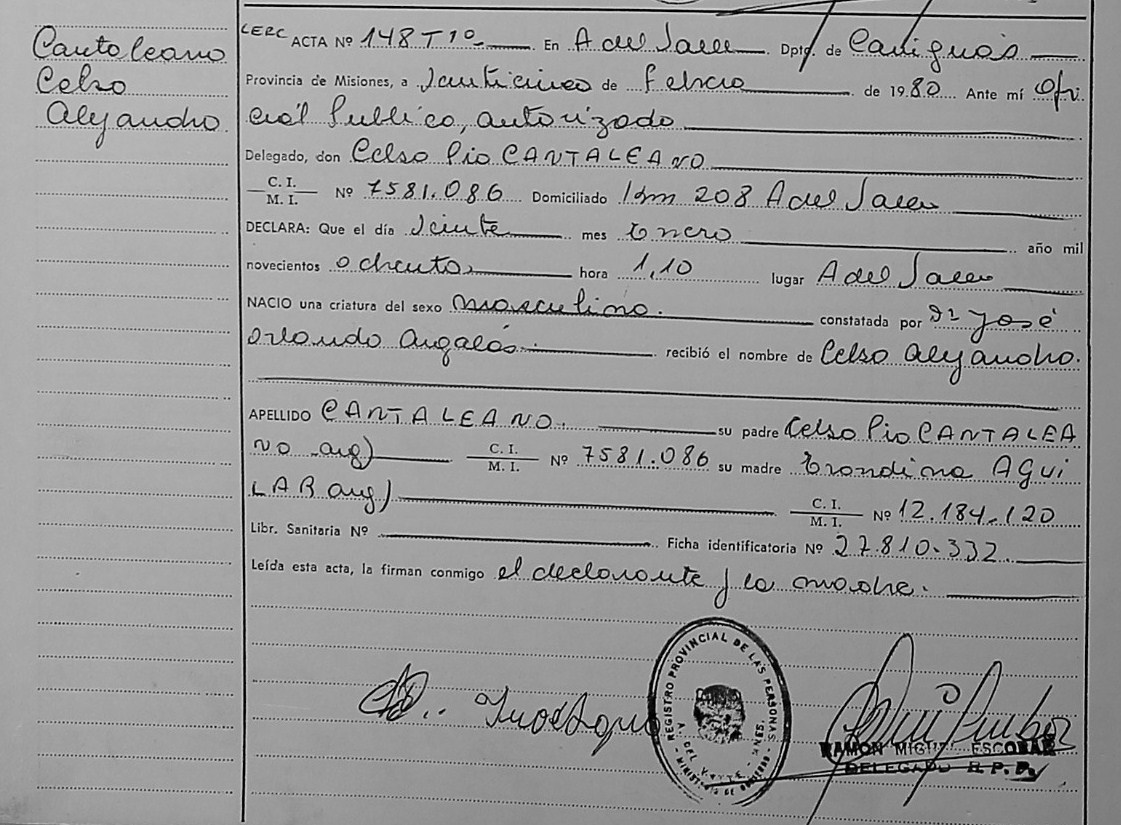 Cantaleano
Celso
Alejandro
LERC ACTA Nº 148 T 1º En A del Valle Dptº. de Cainguás
Provincia de Misiones, a veinticinco de Febrero de 1980 Ante mí Ofi
cial Publico, autorizado
Delegado, don Celso Pio CANTALEANO
C. I.
M. I. Nº 7581.086 Domiciliado Km 208 A del Valle
DECLARA: Que el día veinte mes Enero año mil
novecientos ochenta hora 1,10 lugar A del Valle
NACIO una criatura del sexo masculino. constatada por Dr José
Orlando recibió el nombre de Celso Alejandro.
APELLIDO CANTALEANO. su padre Celso Pio CANTALEA
NO arg) C. I.
M. I. Nº 7581.086 su madre AGUI
LAR arg) C. I.
M. I. Nº 12.184.120
Libr. Sanitaria Nº Ficha identificatoria Nº 27.810.332
Leída esta acta, la firman conmigo el declarante y la madre.
REGISTRO PROVINCIAL DE LAS PERSONAS
A. DEL VALLE - MNES.
MINISTERIO DE GOBIERNO
RAMON MIGUEL ESCOBAR
DELEGADO R. P. P.